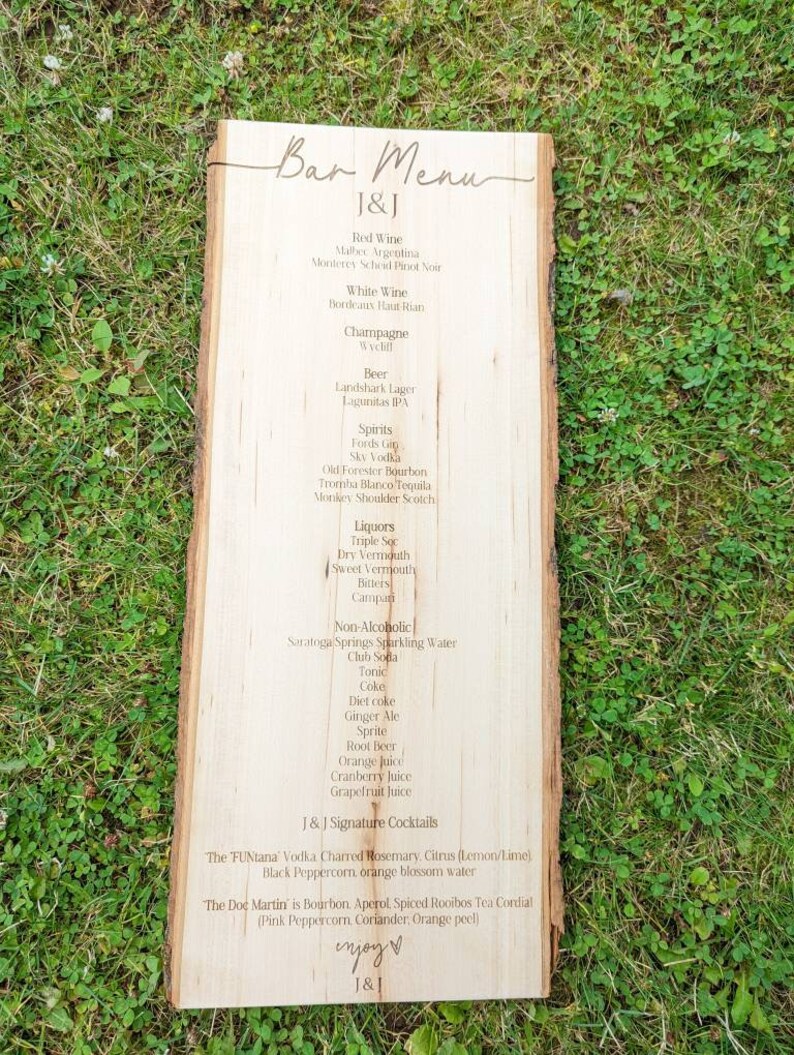 Bar Menu
J&J
Red Wine
Malbec Argentina
Monterey Scheid Pinot Noir
White Wine
Bordeaux Haut-Rian
Champagne
Wycliff
Beer
Landshark Lager
Lagunitas IPA
Spirits
Fords Gin
Sky Vodka
Old Forester Bourbon
Tromba Blanco Tequila
Monkey Shoulder Scotch
Liquors
Triple Sec
Dry Vermouth
Sweet Vermouth
Bitters
Campari
Non-Alcoholic
Saratoga Springs Sparkling Water
Club Soda
Tonic
Coke
Diet coke
Ginger Ale
Sprite
Root Beer
Orange Juice
Cranberry Juice
Grapefruit Juice
J & J Signature Cocktails
"The "FUNtana" Vodka, Charred Rosemary, Citrus (Lemon/Lime),
Black Peppercorn, orange blossom water
"The Doc Martin" is Bourbon, Aperol, Spiced Rooibos Tea Cordial
(Pink Peppercorn, Coriander, Orange peel)
enjoy
J&J